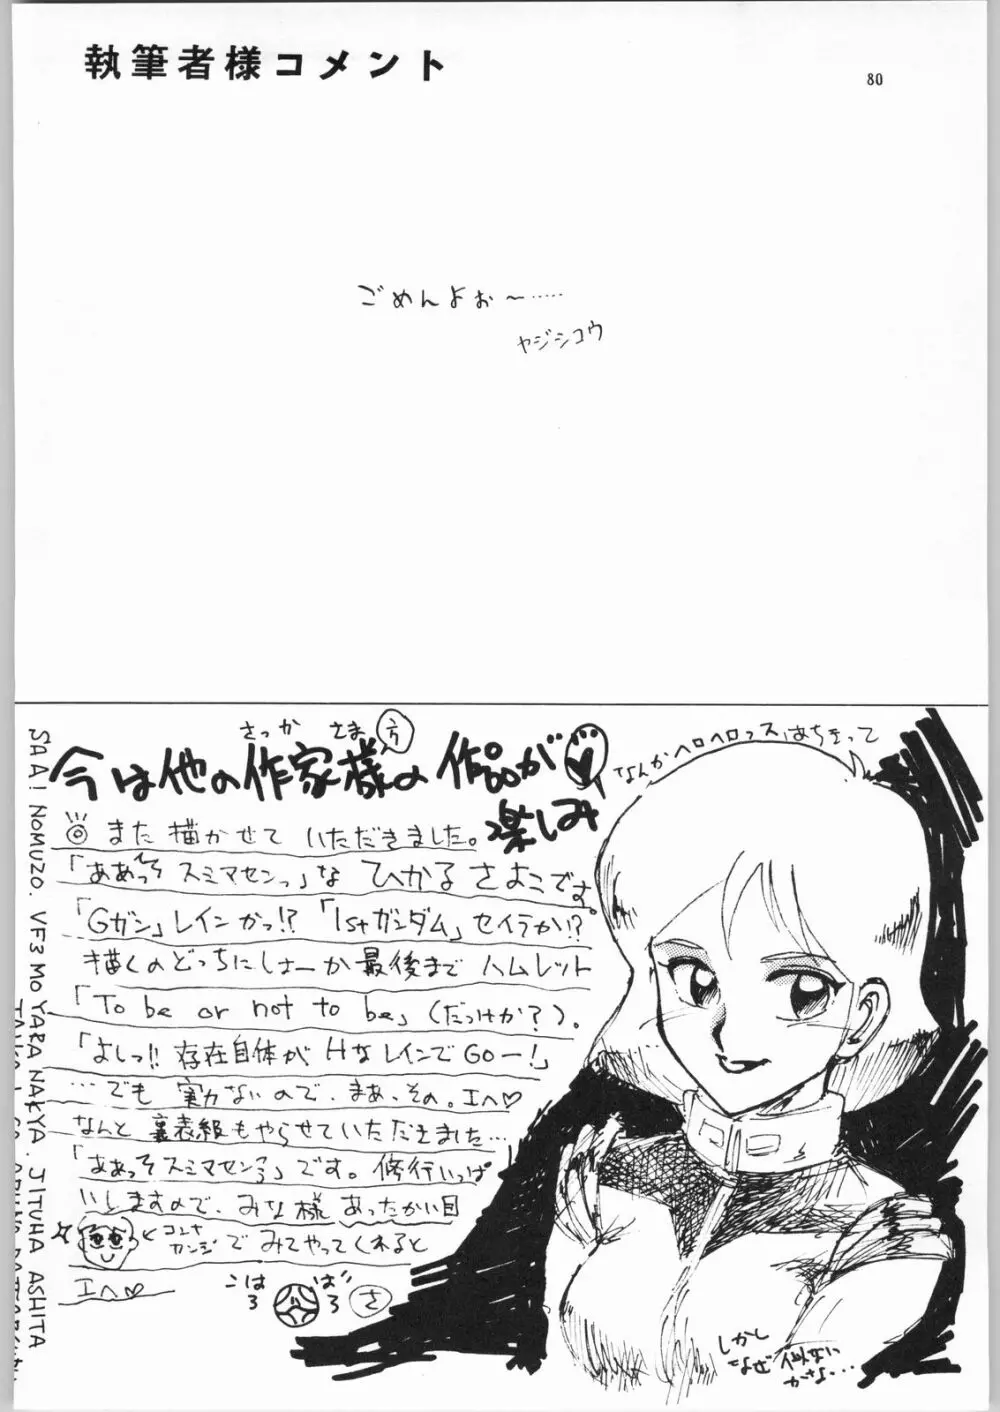 執筆者様コメント
80
ごめんよぉ～……
ヤジシコウ
さっか さま
今は他の作家様の作品が
方
楽しみ
また描かせていただきました。
「ああっそスミマセンっ」な ひかるさよこです。
「Gガン」レインかっ!?「1stガンダム」セイラか!?
描くのどっちにしよーか最後までハムレット
「To be or not to be」(だっけか?)。
「よしっ!!存在自体がHなレインでGOー!」
…でも実力ないので、まぁ、その。エヘ♡
なんと裏表紙もやらせていただきました…
「ああっそスミマセンっ」です。修行いっぱ
いしますので、みな様あったかい目
コンナ
カンジ
でみてやってくれると
エヘ♡
さ
なんかヘロヘロっス
しかし
なぜ似ない
かな…
SAA! NOMUZO. VF3 MO YARA NAKYA. JITUHA ASHITA